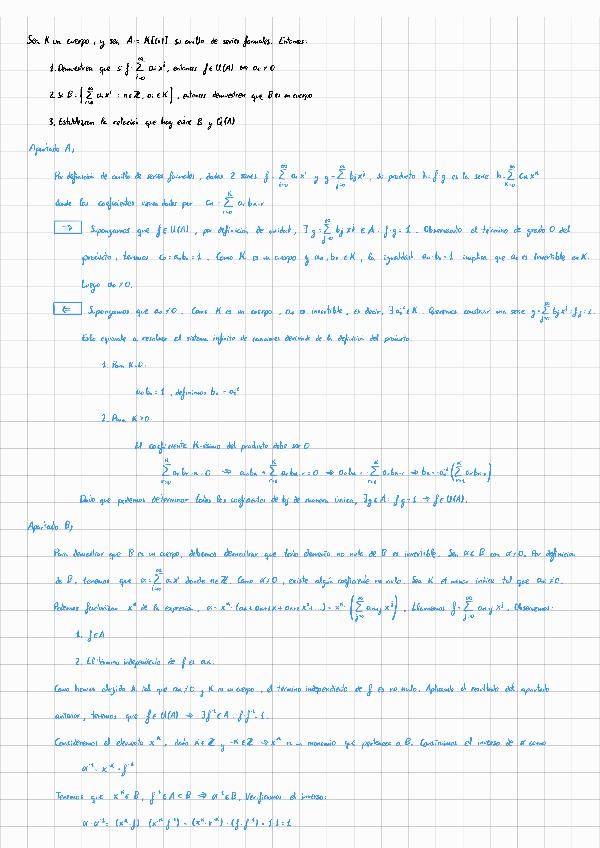 Sea K un cuerpo, y sea A = K[[x]] su anillo de series formales. Entonces:
1. Demuestren que si f = ∑_{i=0}^{∞} a_i x^i, entonces f ∈ U(A) ⇔ a_0 ≠ 0
2. Si B = {∑_{i=n}^{∞} a_i x^i : n ∈ ℤ, a_i ∈ K}, entonces demuestren que B es un cuerpo
3. Establezcan la relación que hay entre B y Q(A)
Apartado A)
Por definición de anillo de series formales, dadas 2 series f = ∑_{i=0}^{∞} a_i x^i y g = ∑_{j=0}^{∞} b_j x^j, su producto h = f·g es la serie h = ∑_{k=0}^{∞} c_k x^k
donde los coeficientes vienen dados por c_k = ∑_{i=0}^{k} a_i b_{k-i}
⇒ Supongamos que f ∈ U(A), por definición de unidad, ∃ g = ∑_{j=0}^{∞} b_j x^j ∈ A : f·g = 1. Observando el término de grado 0 del
producto, tenemos c_0 = a_0 b_0 = 1. Como K es un cuerpo y a_0, b_0 ∈ K, la igualdad a_0·b_0 = 1 implica que a_0 es invertible en K.
Luego a_0 ≠ 0.
⇐ Supongamos que a_0 ≠ 0. Como K es un cuerpo, a_0 es invertible, es decir, ∃ a_0^{-1} ∈ K. Queremos construir una serie g = ∑_{j=0}^{∞} b_j x^j : f·g = 1.
Esto equivale a resolver el sistema infinito de ecuaciones derivado de la definición del producto.
1. Para K=0:
a_0 b_0 = 1, definimos b_0 = a_0^{-1}
2. Para K>0:
El coeficiente K-ésimo del producto debe ser 0
∑_{i=0}^{k} a_i b_{k-i} = 0 ⇒ a_0 b_k + ∑_{i=1}^{k} a_i b_{k-i} = 0 ⇒ a_0 b_k = -∑_{i=1}^{k} a_i b_{k-i} ⇒ b_k = -a_0^{-1} (∑_{i=1}^{k} a_i b_{k-i})
Dado que podemos determinar todos los coeficientes de b_j de manera única, ∃ g ∈ A : f·g = 1 → f ∈ U(A).
Apartado B)
Para demostrar que B es un cuerpo, debemos demostrar que todo elemento no nulo de B es invertible. Sea α ∈ B con α ≠ 0. Por definición
de B, tenemos que α = ∑_{i=n}^{∞} a_i x^i donde n ∈ ℤ. Como α ≠ 0, existe algún coeficiente no nulo. Sea K el menor índice tal que a_k ≠ 0.
Podemos factorizar x^k de la expresión, α = x^k · (a_k + a_{k+1} x + a_{k+2} x^2 + ...) = x^k · (∑_{j=0}^{∞} a_{k+j} x^j). Llamemos f = ∑_{j=0}^{∞} a_{k+j} x^j. Observemos:
1. f ∈ A
2. El término independiente de f es a_k.
Como hemos elegido K tal que a_k ≠ 0 y K es un cuerpo, el término independiente de f es no nulo. Aplicando el resultado del apartado
anterior, tenemos que f ∈ U(A) ⇒ ∃ f^{-1} ∈ A : f·f^{-1} = 1.
Consideremos el elemento x^k, dado K ∈ ℤ y -K ∈ ℤ ⇒ x^{-k} es un monomio que pertenece a B. Construimos el inverso de α como
α^{-1} = x^{-k} · f^{-1}
Tenemos que x^{-k} ∈ B, f^{-1} ∈ A ⊂ B ⇒ α^{-1} ∈ B. Verificamos el inverso:
α·α^{-1} = (x^k·f) · (x^{-k}·f^{-1}) = (x^k·x^{-k}) · (f·f^{-1}) = 1·1 = 1